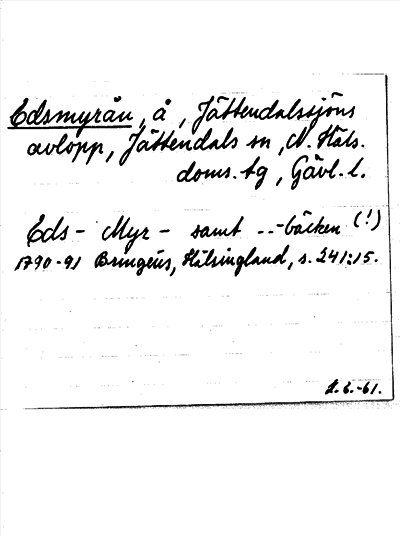 Edsmyrån, å, Jättendalssjöns
avlopp, Jättendals sn, N. Häls.
doms. tg, Gävl. l.
Eds- Myr- samt ..-bäcken (!)
1790-91 Bringéus, Hälsingland, s. 241:15.
2.6.-61.